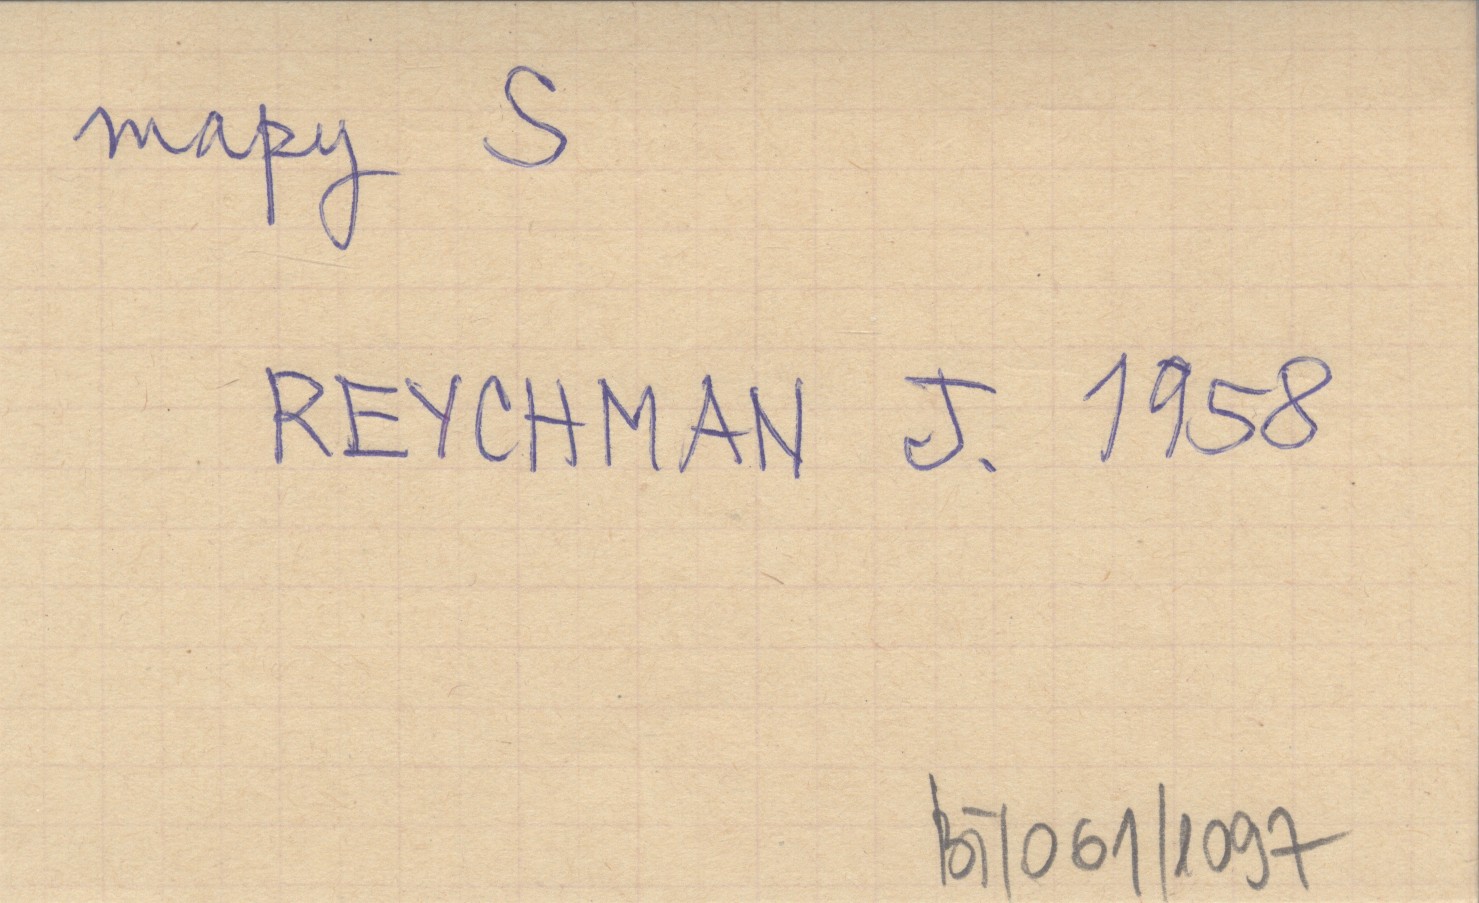 mapy S
REYCHMAN J. 1958
BT/061/1097